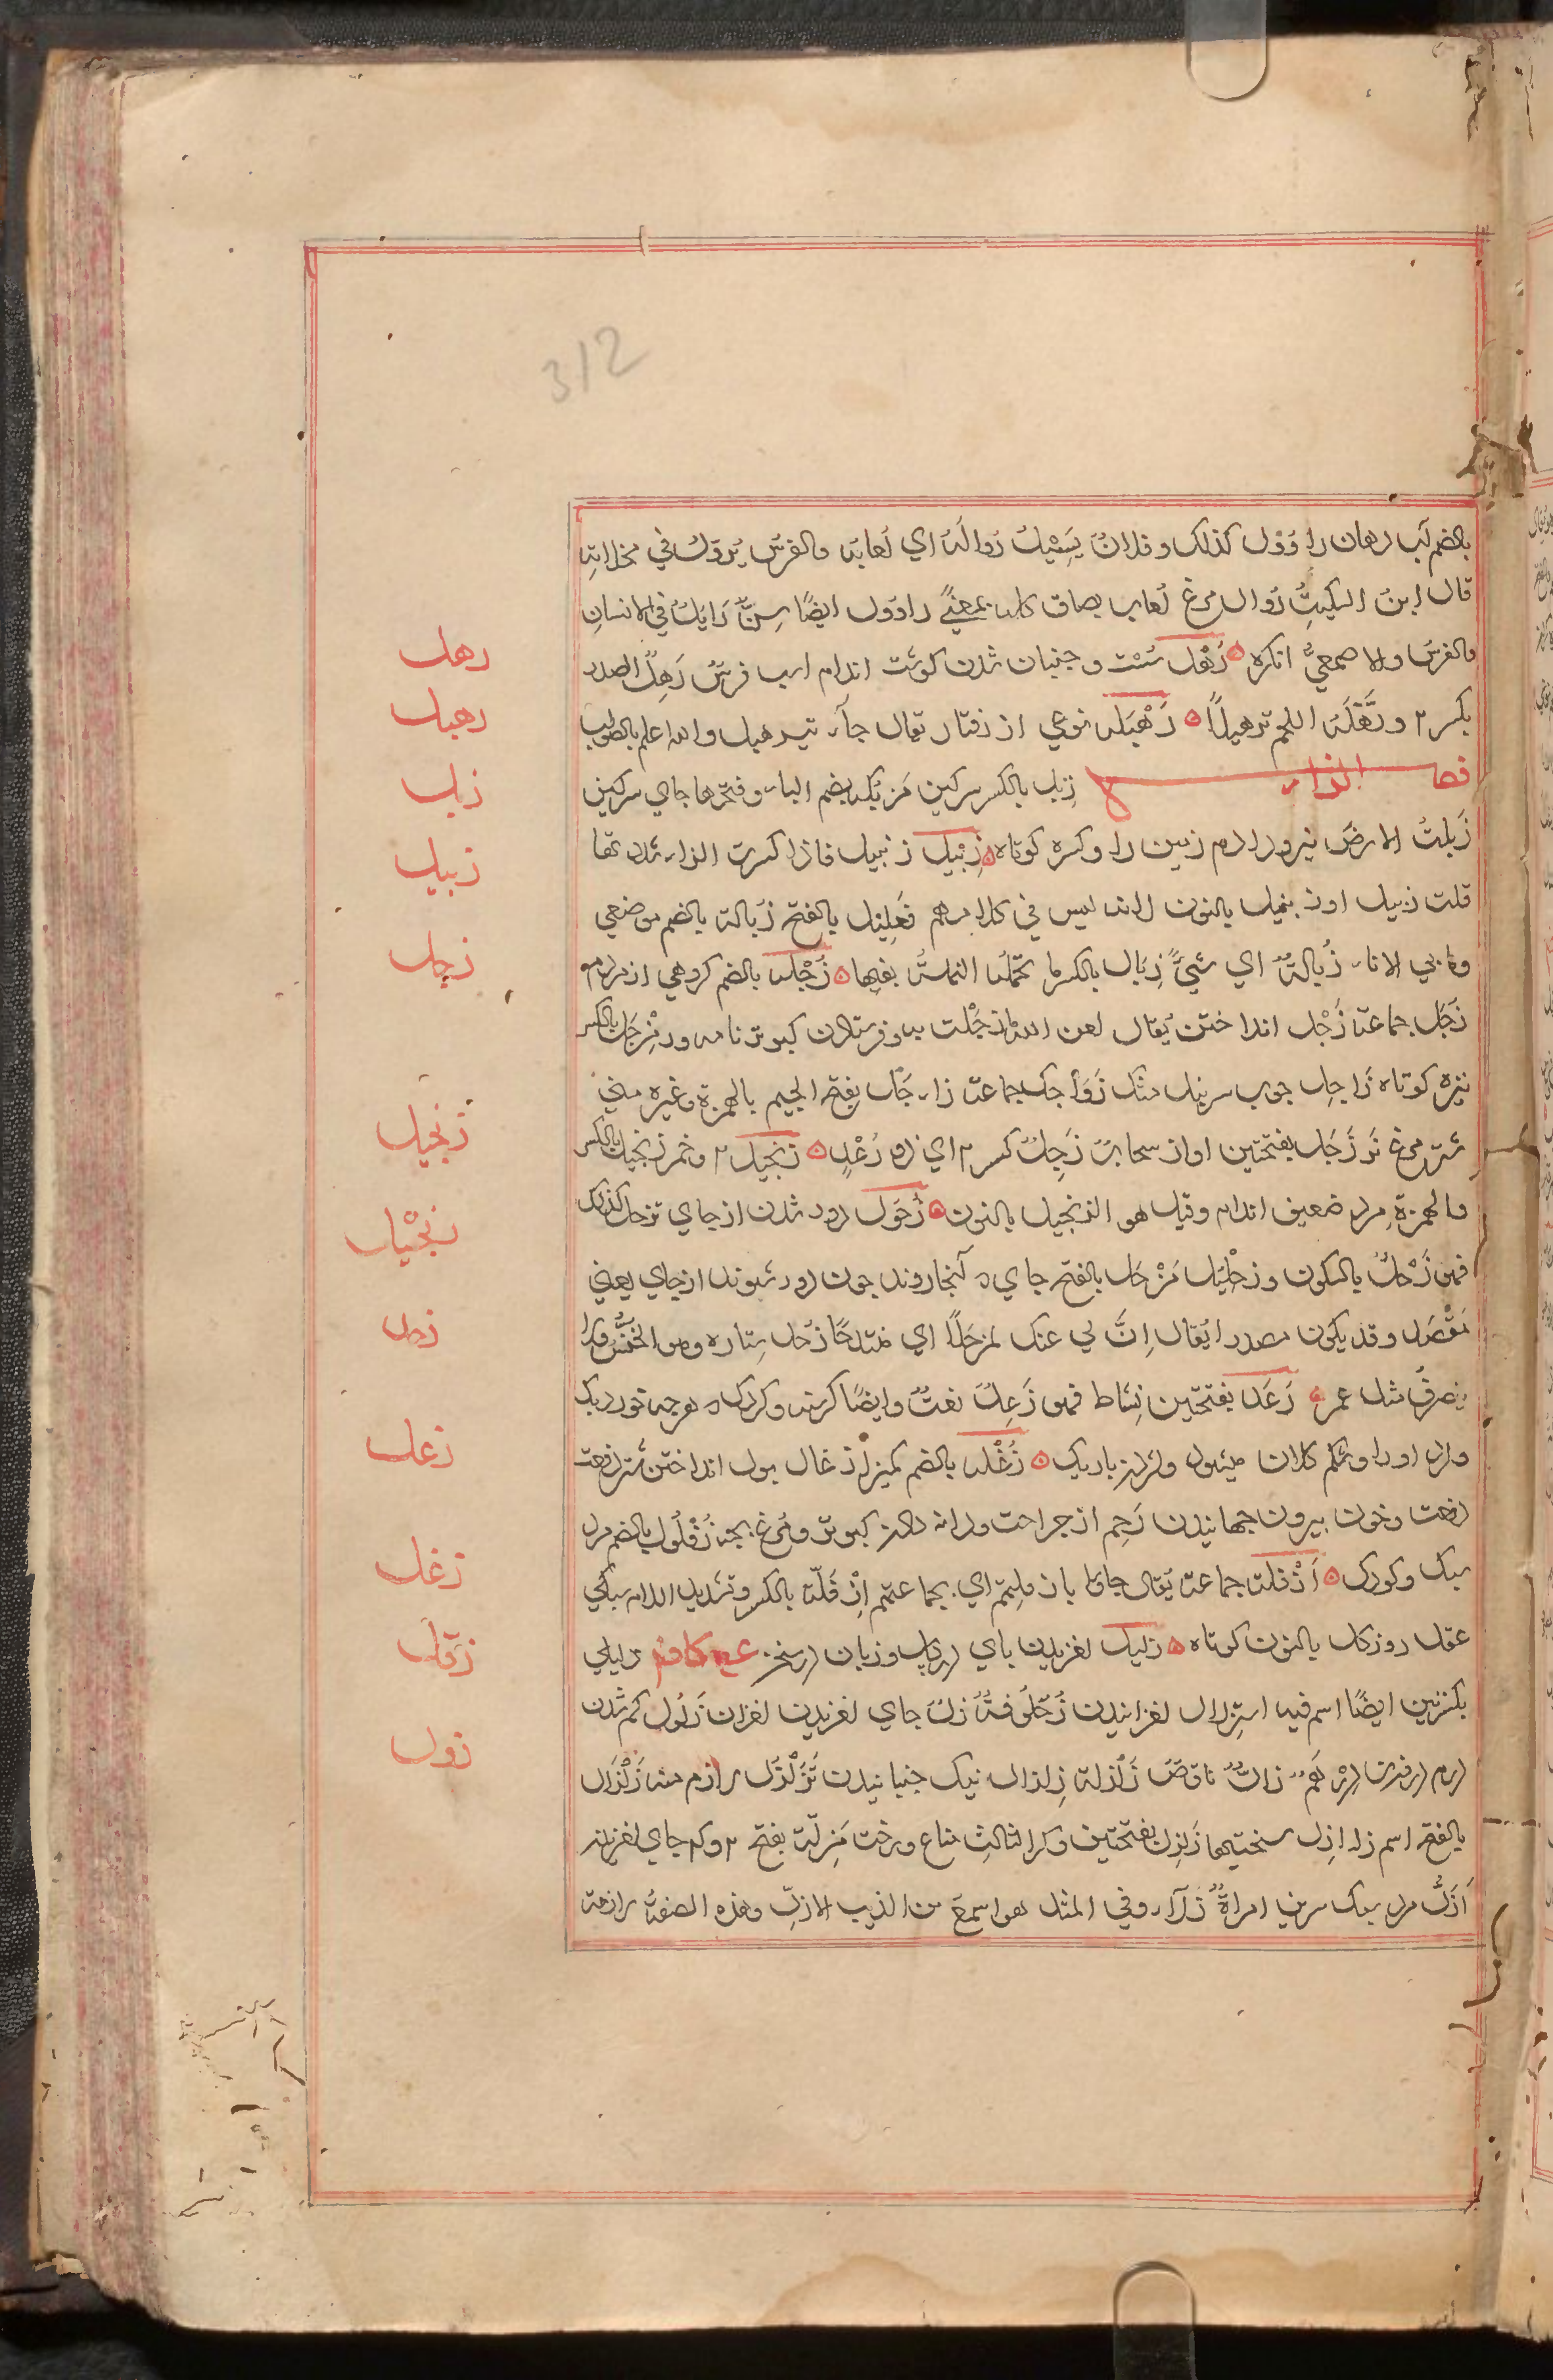 312
بالضم آب دهان راؤول كذلك و فلانٌ يَسِيْلُ رُوالُه اي لُعابُه والفرسُ يُروّلُ في مخلاتِه
قال ابنُ السِكّيتِ رُوال مرغ لُعاب بصاق كله بمعنًي راوول ايضًا سِنٌّ زايدٌ في الانسانِ
والفرس والاصمعيُّ انكره رَهْل سُسْت و جنبان شدن كوشت اندام اسب فرسٌ رَهِلُ الصدر
بكسر ۲ ورَهَّلَه اللحم ترهيلاً رَهْبَلَه نوعي از رفتار يقال جآء يترهبل والله اعلم بالصواب
فصل الزاء زبل بالكسر سركين مَزبُله بضم الباء وفتحها جاي سركين
زَبلتُ الارضَ نيرو دادم زمين را و كسره كوتاه زِبّيل زنبيل فاذا كسرت الزاء شدد تها
قلت زبيل او زنبيل بالنون لانه ليس في كلامهم فَعليل بالفتح زبالة بالضم موضعي
وما في الاناء زُبالةٌ اي شيٌ زِبال بالكسر ما تحملُه النملةُ بفيها زُجْلَه بالضم كروهي از مردم
زُجَل جماعة زَجْل انداختن يُقال لعن الله امًا زجَلت به و فرستادن كبوتر نامه ور مِزْجَل بالكسر
نيزه كوتاه زَاجِل چوب سربند مشك زَوَاجل جماعة زاءجَل بفتح الجيم بالهمزة وغيره مني
شتر مرغ نر زَجَل بفتحتين اواز سحابٌ زَجِلٌ كسر ۲ اي ذو رَعْدٍ زنجيل ۲ و خمر زنجيل بالكسر
والهمزةِ مرد ضعيف اندام وقيل هو الزنجيل بالنون زُحَول دور شدن از جاي تزحل كذلك
فهو زَحْلٌ بالسكون وزِحْليل مَزْحَل بالفتح جاي كه آنجا روند چون دور شوند از جاي يعني
مَقْصَد و قد يكون مصدرا يُقال اِنَّ لي عنك لمزحَلًا اي مُنتدحًا زُحل ستاره وهو الخنس ولا
ينصرفُ مثل عمر زَعَل بفتحتين نِشاط فهو زَعِلٌ نعتٌ وايضًا كرسنه و كردك
زُغْلَه بالضم كميز ازغال بول انداختن شتر دفعت
دفعت و خون بيرون جهانيدن زخم از جراحت و دانه دادن كبوتر و مُرغ بچه زُغْلُول بالضم مرد
سبك و كودك اَزْفَلَة جماعة يُقال جاؤا بازفلتهم اي بجماعتهم اِزْفَلّة بالكسر و تشديد اللام سبكي
عقل روزكل بالنون كوتاه زليل لغزيدن پاي در كل و زبان در سخن زليلي
بكسرتين ايضًا اسم فيه استزلال لغزانيدن زُحْلُوفةٌ زلٌ جاي لغزيدن لغزان زَلُول كم شدن
درم زالٌّ ناقصٌ زَلْزلة زِلزال نيك جنبانيدن تَزَلْزَل لازم منه زَلْزَال
بالفتح اسم زلازِل سختيها زَلَزِل بفتحتين وكسر الثالث متاع و رخت مَزِلّة بفتح ۲ وكسر جاي لغزيدن
اَزَلُّ مرد سبك سرين امراةٌ زلآء وفي المثل هو اسمعُ من الذيب الازلِّ وهذه الصفةُ لازمة
رهل
رهبل
زبل
زبيل
زجل
زنجيل
زنجيل
زحل
زعل
زغل
زفل
زول